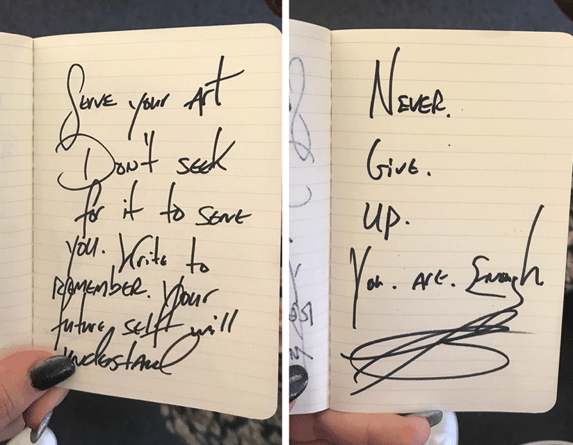 Serve your Art
Don't seek
for it to serve
you. Write to
remember. Your
future self will
understand
Never.
Give.
Up.
You. Are. Enough.